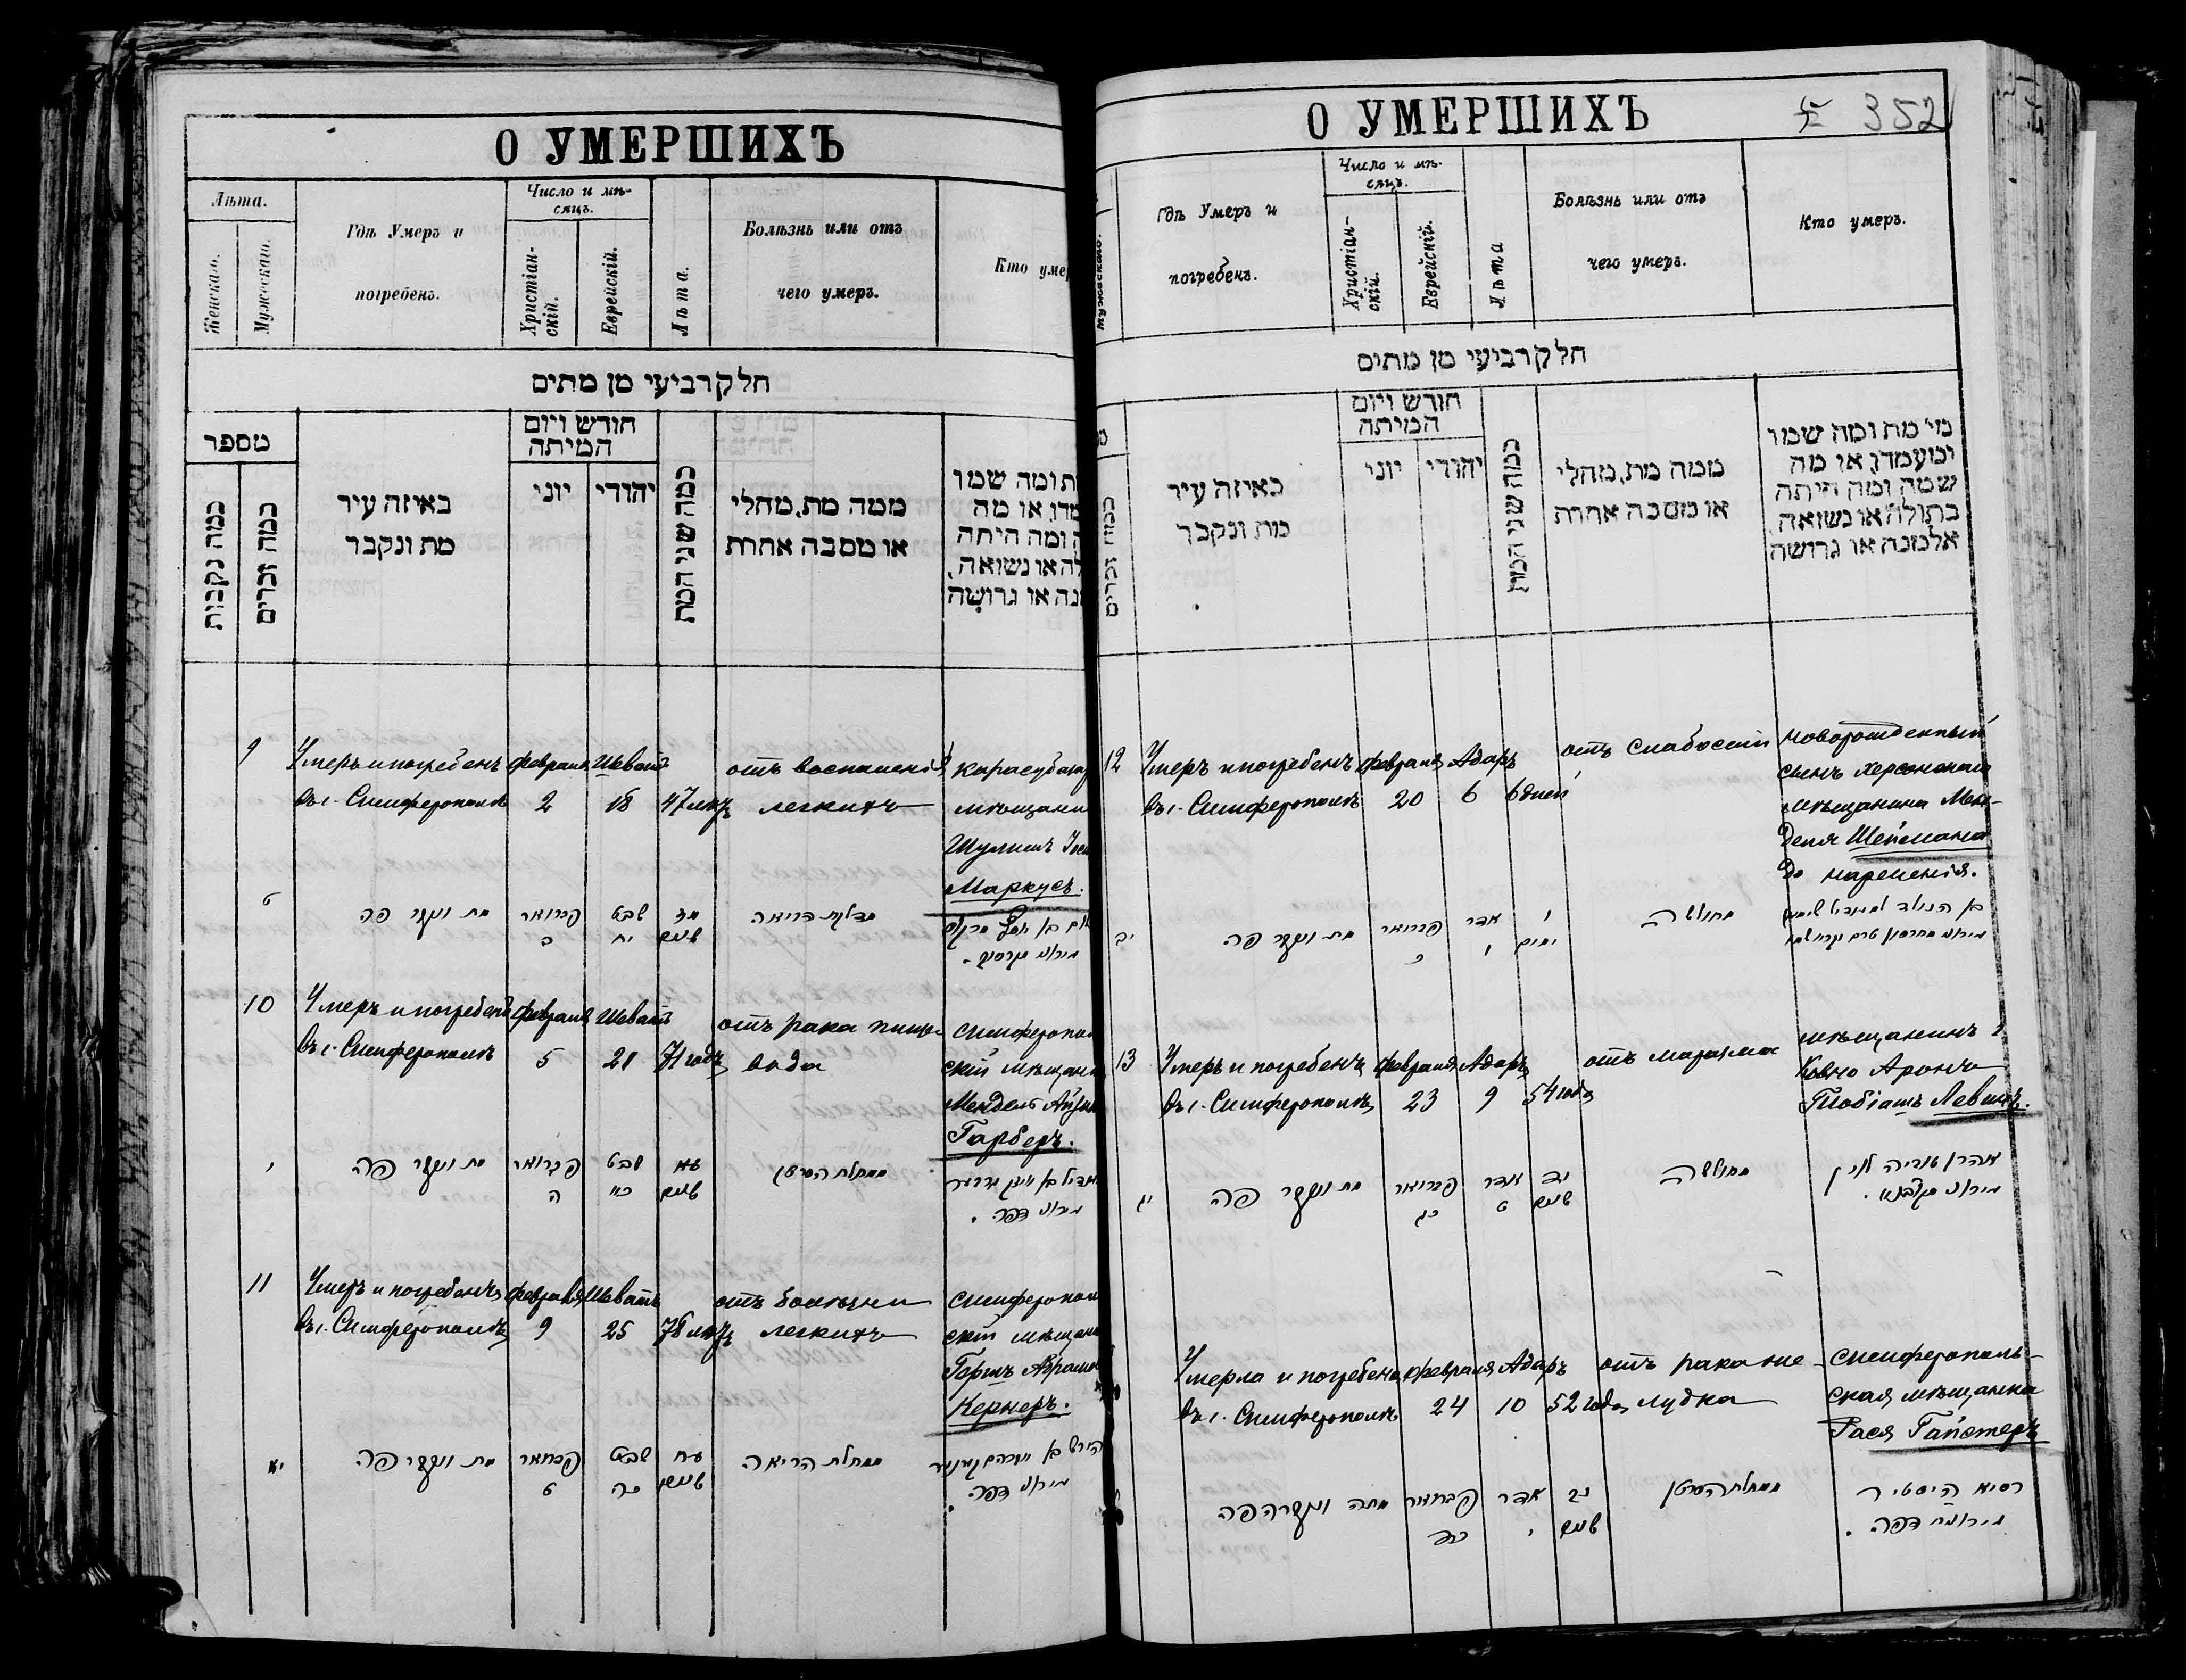 О УМЕРШИХЪ
Лѣта.
Женскаго.
Мужескаго.
Гдѣ Умеръ и
погребенъ.
Число и мѣ-
сяцъ.
Христіан-
скій.
Еврейскій.
Лѣта.
Болѣзнь или отъ
чего умеръ.
Кто умер
חלק רביעי מן מתים
מספר
כמה נקבות
כמה זכרים
באיזה עיר
מת ונקבר
חודש ויום
המיתה
יוני
יהודי
כמה שני המת
ממה מת, מחלי
או מסבה אחרת
ת ומה שמו
מדו, או מה
ה ומה היתה
לה או נשואה,
נה או גרושה
9
Умеръ и погребенъ
въ г. Симферополѣ
Февраля
2
Шеватъ
18
47 лѣтъ
отъ воспаленія
легкихъ
Карасубазар
мѣщанин
Шулимъ Іос
Маркусъ.
ט
מת ונקבר פה
פברואר
ב
שבט
יח
מז
שנים
מדלקת הריאה
10
Умеръ и погребенъ
въ г. Симферополѣ
Февраля
5
Шеватъ
21
71 годъ
отъ рака пище-
вода
Симферополь
скій мѣщани
Мендель Айзик
Гарберъ.
י
מת ונקבר פה
פברואר
ה
שבט
כא
עא
שנים
ממחלת הסרטן
מירוני דפה.
11
Умеръ и погребенъ
въ г. Симферополѣ
Февраля
9
Шеватъ
25
78 лѣтъ
отъ болѣзни
легкихъ
Симферополь
скій мѣщани
Гаршъ Абрамов
Кернеръ.
יא
מת ונקבר פה
פברואר
ט
שבט
כה
עח
שנים
ממחלת הריאה
מירוני דפה.
О УМЕРШИХЪ
352
Мужескаго.
Гдѣ Умеръ и
погребенъ.
Число и мѣ-
сяцъ.
Христіан-
скій.
Еврейскій.
Лѣта
Болѣзнь или отъ
чего умеръ.
Кто умеръ.
חלק רביעי מן מתים
כמה זכרים
באיזה עיר
מת ונקבר
חודש ויום
המיתה
יוני
יהודי
כמה שני המת
ממה מת, מחלי
או מסבה אחרת
מי מת ומה שמו
ומעמדו, או מה
שמה ומה היתה
בתולה או נשואה,
אלמנה או גרושה
12
Умеръ и погребенъ
въ г. Симферополѣ
Февраля
20
Адаръ
6
6 дней
отъ слабости
новорожденный
сынъ Херсонскаго
мѣщанина Мен-
деля Шейнмана
до нареченія.
יב
מת ונקבר פה
פברואר
כ
אדר
ו
ו
ימים
מחולשה
13
Умеръ и погребенъ
въ г. Симферополѣ
Февраля
23
Адаръ
9
54 года
отъ маразма
мѣщанинъ г.
Ковно Аронъ
Тобіашъ Левинъ.
יג
מת ונקבר פה
פברואר
כג
אדר
ט
נד
שנים
מחולשה
אהרן טוביה לוין
Умерла и погребена
въ г. Симферополѣ
Февраля
24
Адаръ
10
52 года
отъ рака же-
лудка
Симферополь-
ская мѣщанка
Рася Гайстеръ
מתה ונקברה פה
פברואר
כד
אדר
י
נב
שנים
ממחלת הסרטן
רסיא הייסטיר
מירונית דפה.